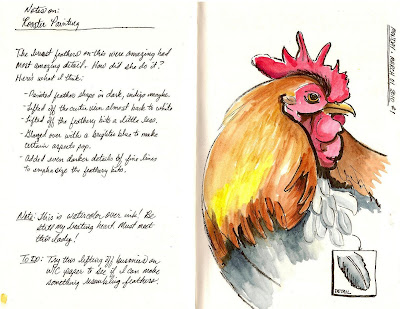 Notes on:
Rooster Painting
The breast feathers on this were amazing had
most amazing detail. How did she do it?
Here's what I think:
- Painted feather shape in dark, indigo maybe
- Lifted off the outer rim almost back to white
- Lifted off the feathery bits a little less.
- Glazed over with a brighter blue to make
certain aspects pop.
- Added even darker details of fine lines
to emphasize the feathery bits.
Note: This is watercolor over ink! Be
still my beating heart. Must meet
this lady!
TO DO: Try this lifting off business on
W/C paper to see if I can make
something resembling feathers.
MONDAY, MARCH 01, 2010
DETAIL